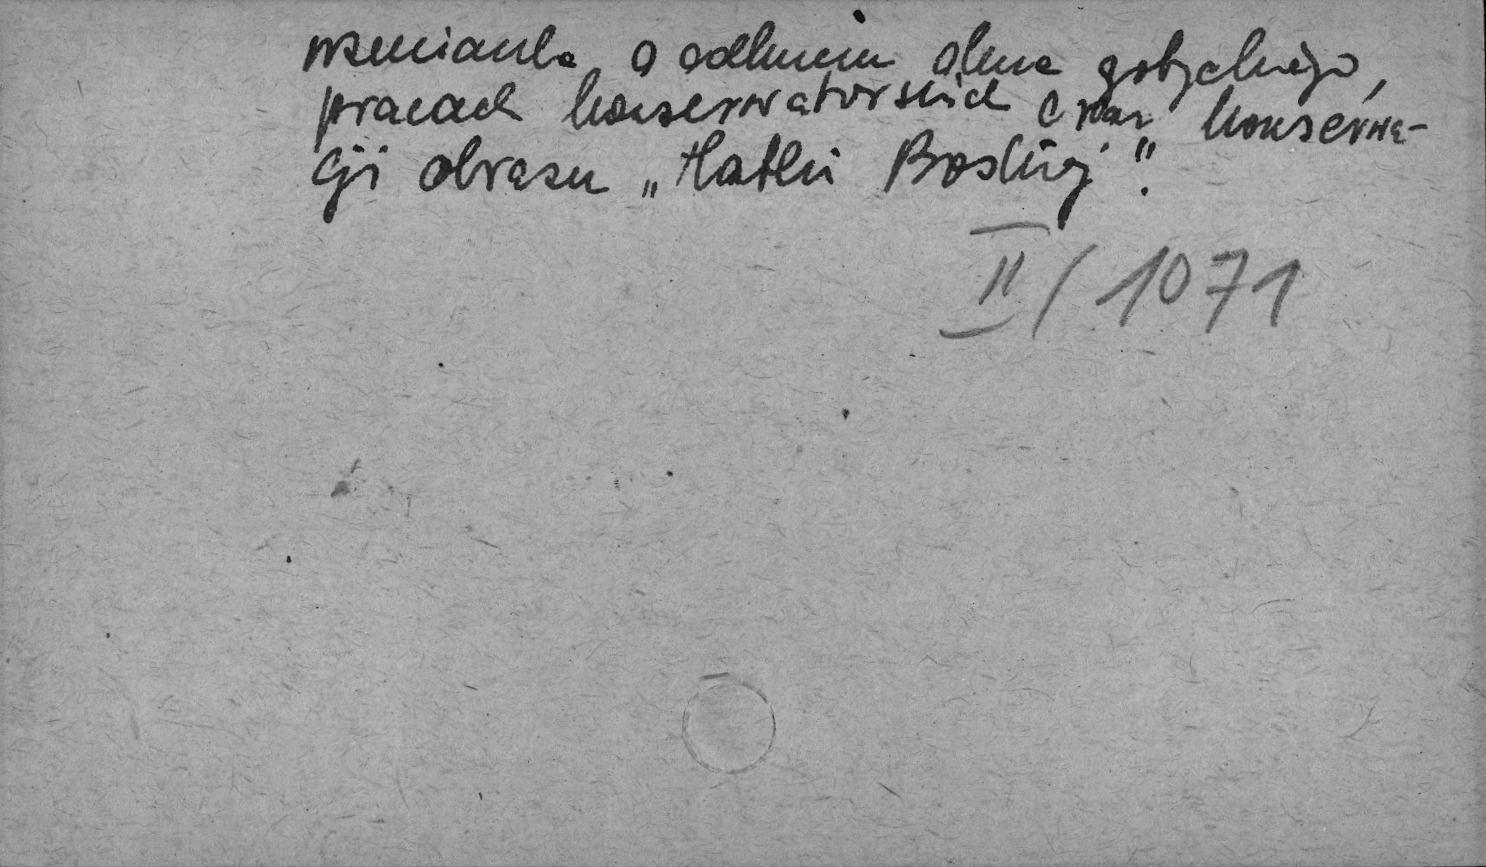 wzmianka o odkryciu okna gotyckiego,
pracach konserwatorskich oraz konserwa-
cji obrazu „Matki Boskiej".
II/1071